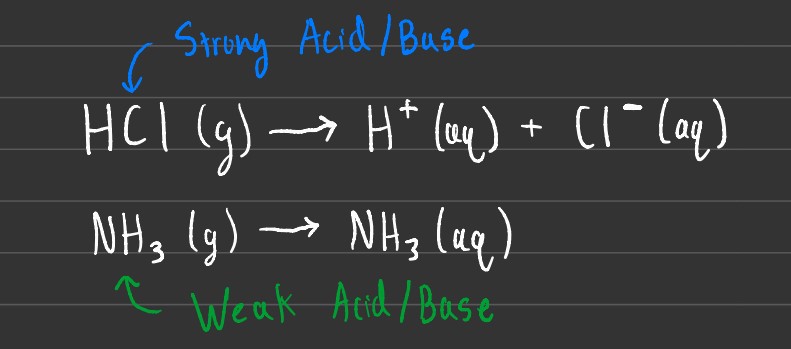 Strong Acid/Base
HCl (g) → H⁺ (aq) + Cl⁻ (aq)
NH₃ (g) → NH₃ (aq)
Weak Acid/Base